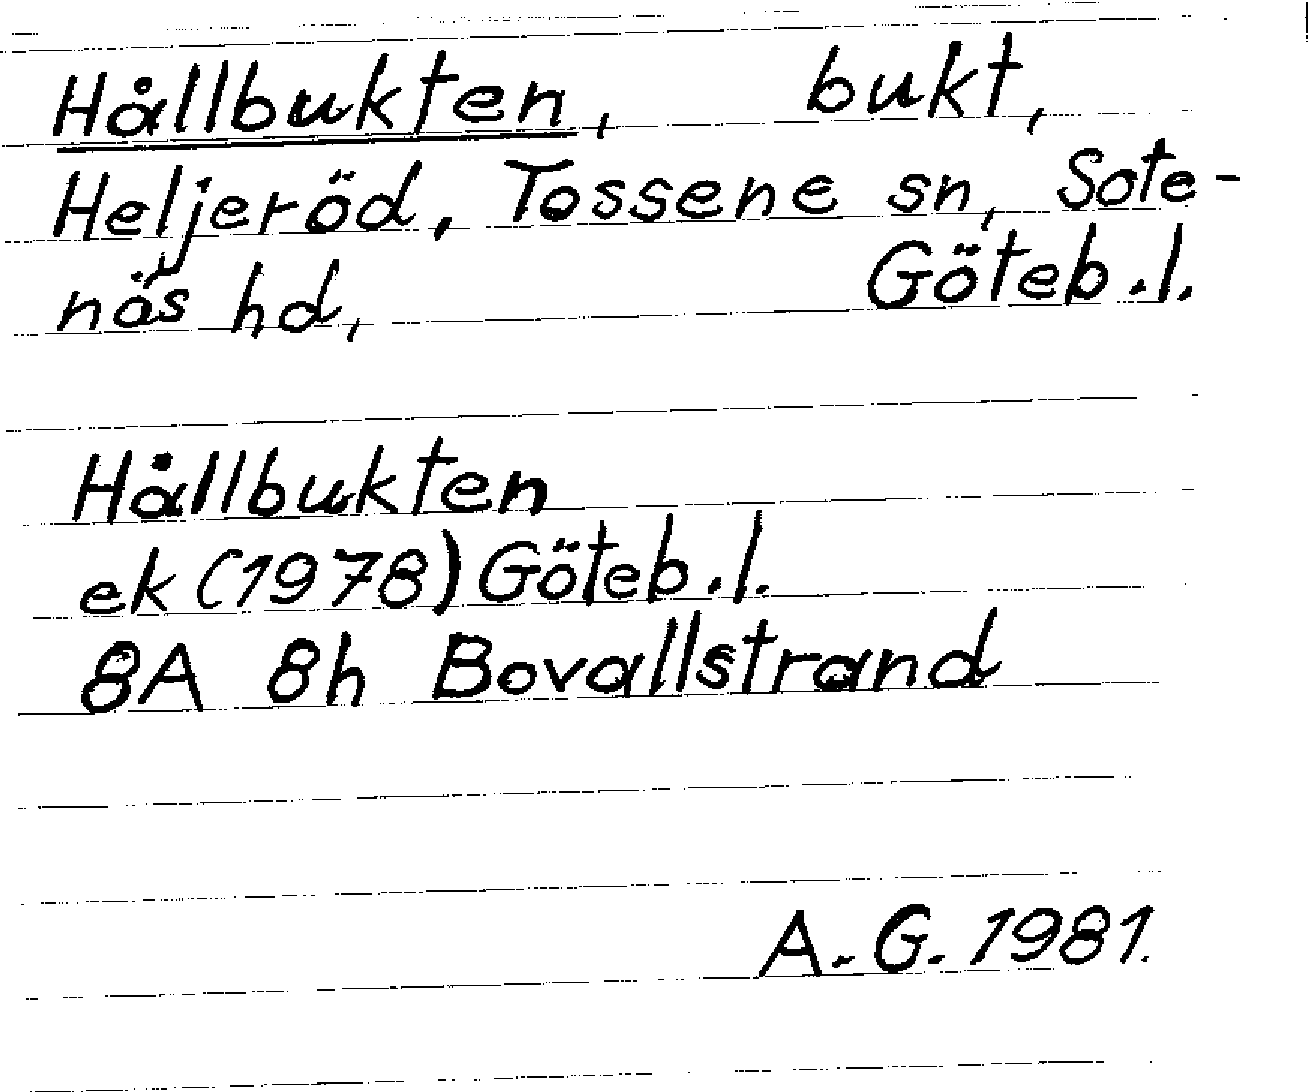 Hållbukten, bukt,
Heljeröd, Tossene sn, Sote-
näs hd, Göteb.l.
Hållbukten
ek (1978) Göteb.l.
8A 8h Bovallstrand
A.G. 1981.